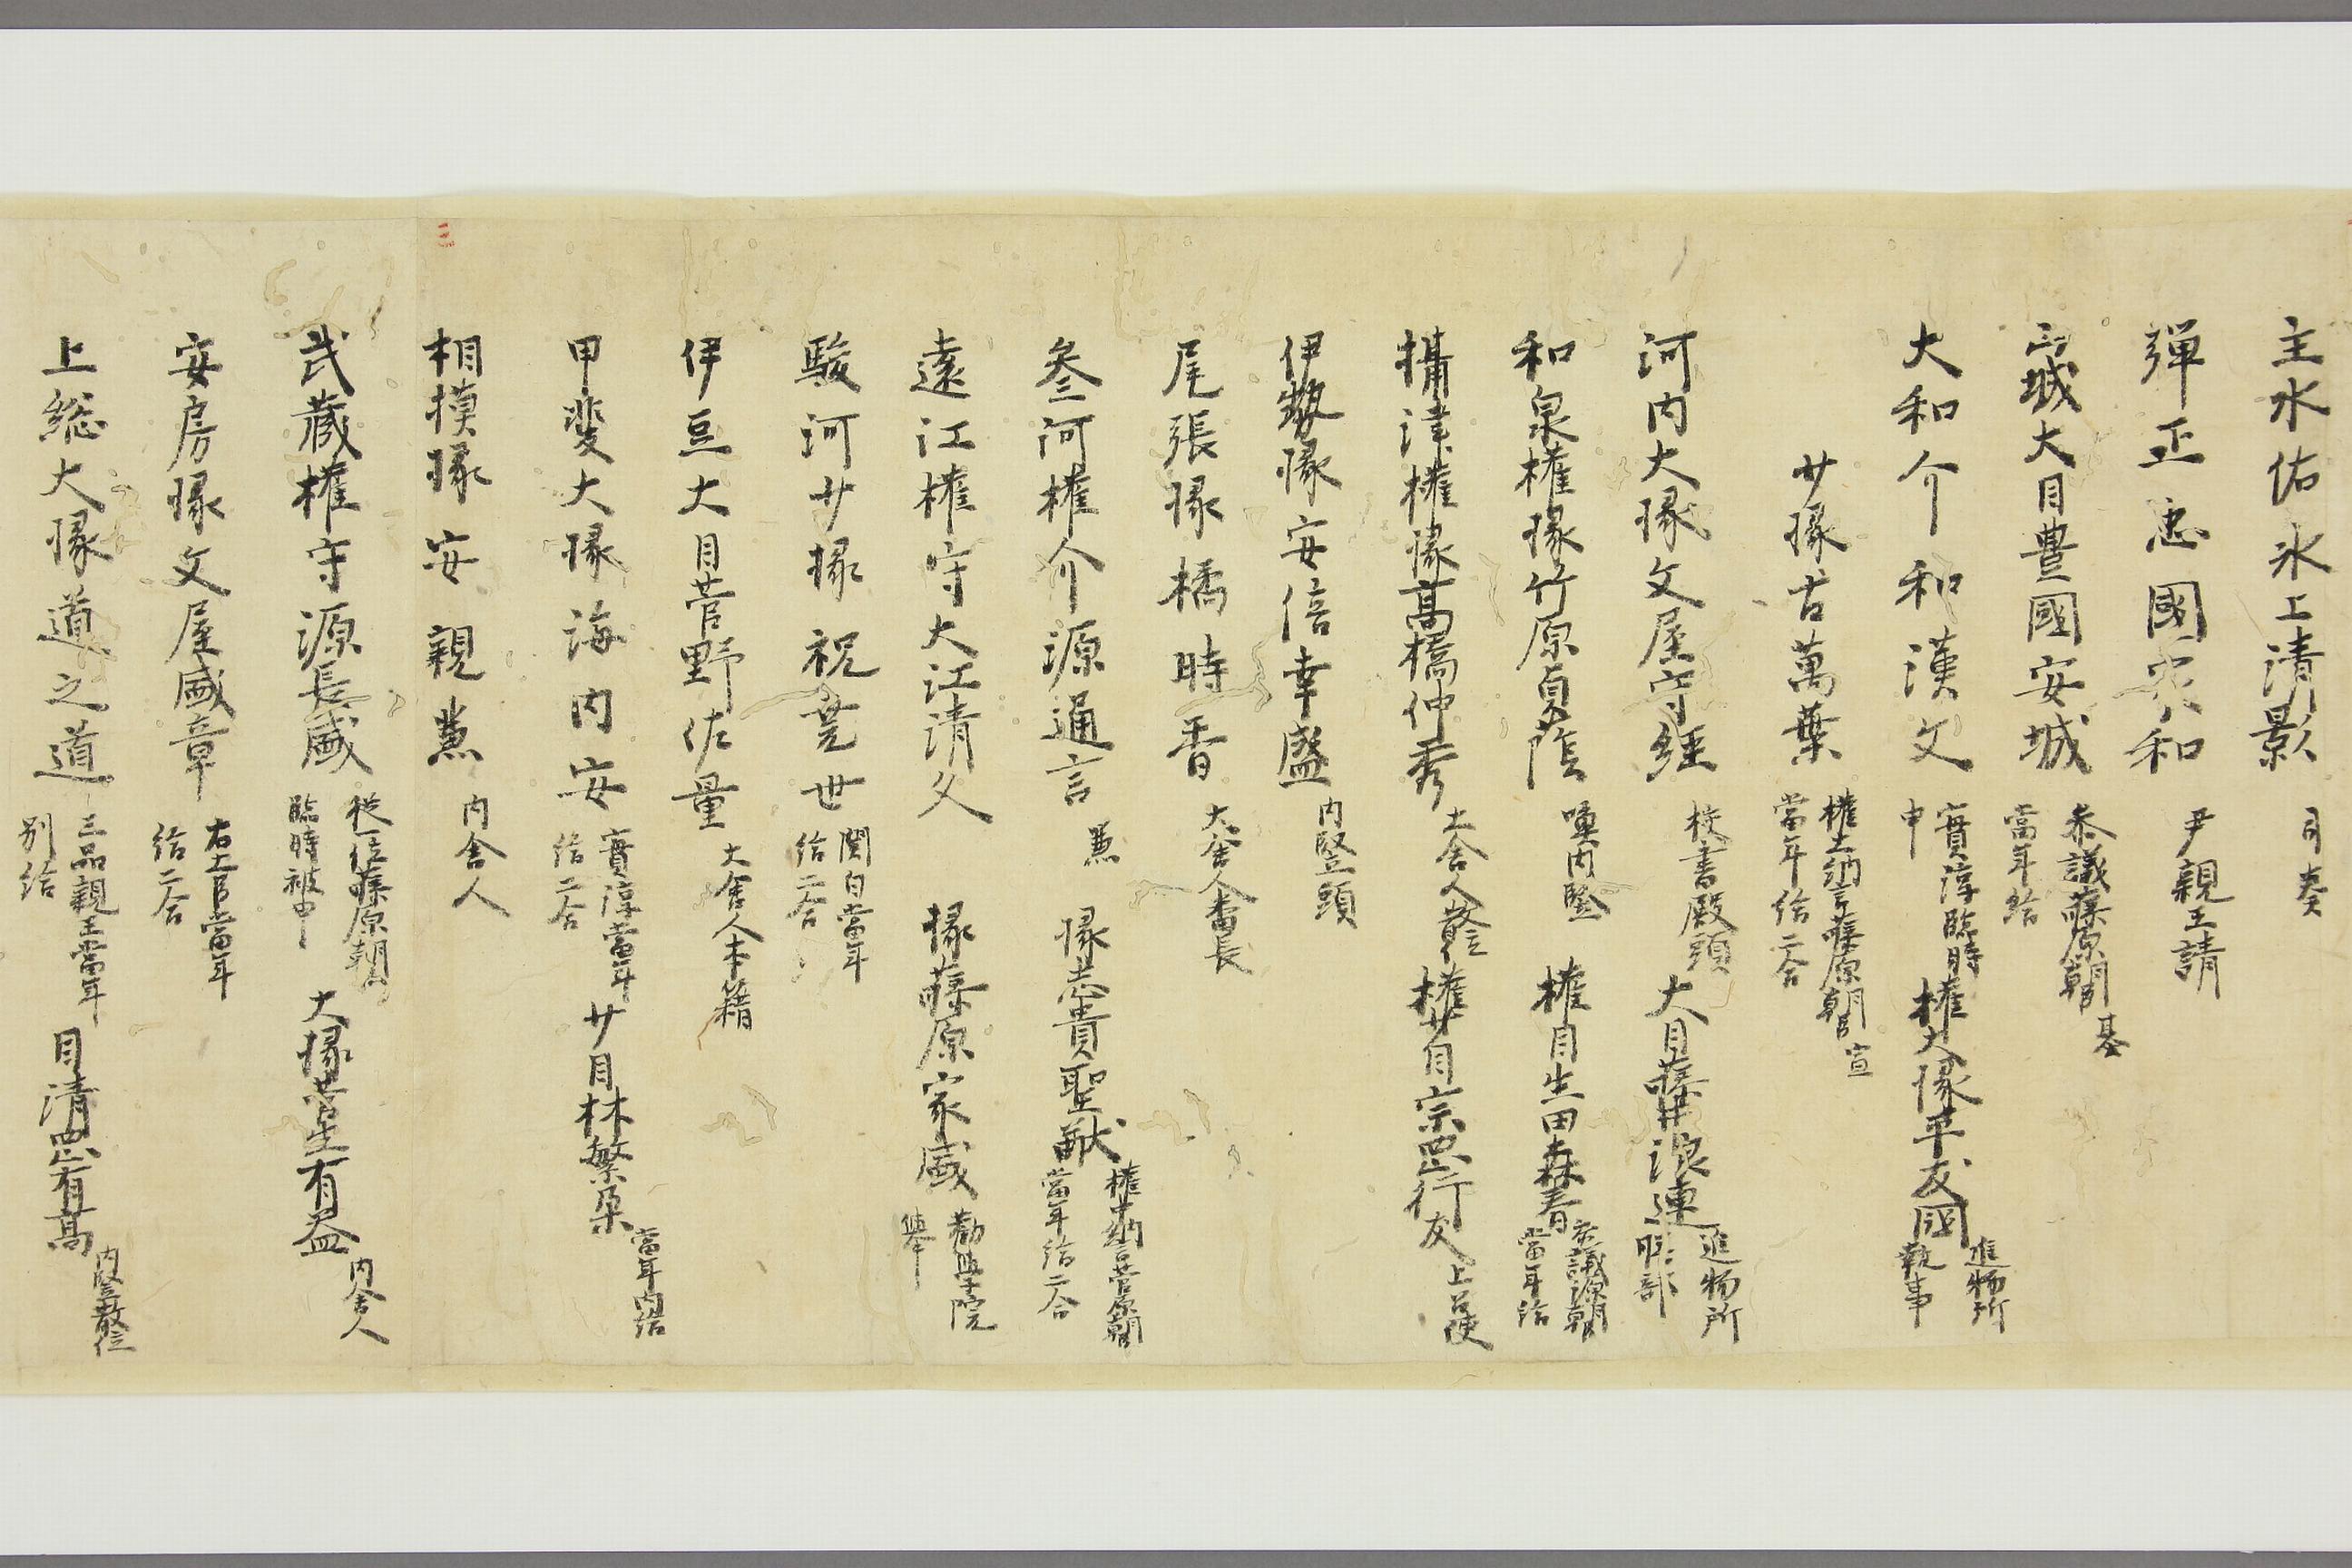 主水佑氷上清影 司奏
弾正忠國家和 尹親王請
山城大目豊國安城 参議藤原朝臣基
當年給
大和介和漢文 實淳臨時
申 権大掾平友國 進物所
執事
少掾古萬葉 権大納言藤原朝臣宣
當年給二合
河内大掾文屋守経 校書殿頭 大目藤井浪連 進物所
膳部
和泉権掾竹原貞蔭 喚内竪 権目生田森春 参議源朝臣
當年給
攝津権掾髙橋仲秀 大舎人散位 権少目宗岡行友 上召使
伊勢掾安倍幸盛 内竪頭
尾張掾橘時香 大舎人番長
参河権介源通言 兼 掾志貴聖猷 権中納言菅原朝臣
當年給二合
遠江権守大江清久 掾藤原家盛 勸學院
擧
駿河少掾祝堯世 関白當年
給二合
伊豆大目菅野佐量 大舎人本籍
甲斐大掾海内安 實淳當年
給二合 少目林繁朶 當年内給
相摸掾安親兼 内舎人
武蔵権守源長盛 従一位藤原朝臣
臨時被申 大掾菅生有益 内舎人
安房掾文屋盛章 右大臣當年
給二合
上総大掾道之道 三品親王當年
別給 目清岡有髙 内竪散位
三